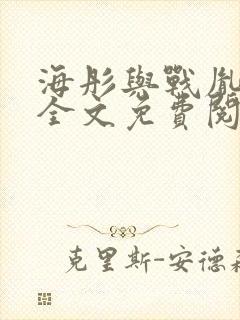 海彤與戰胤
全文免費閱
克里斯-安德森